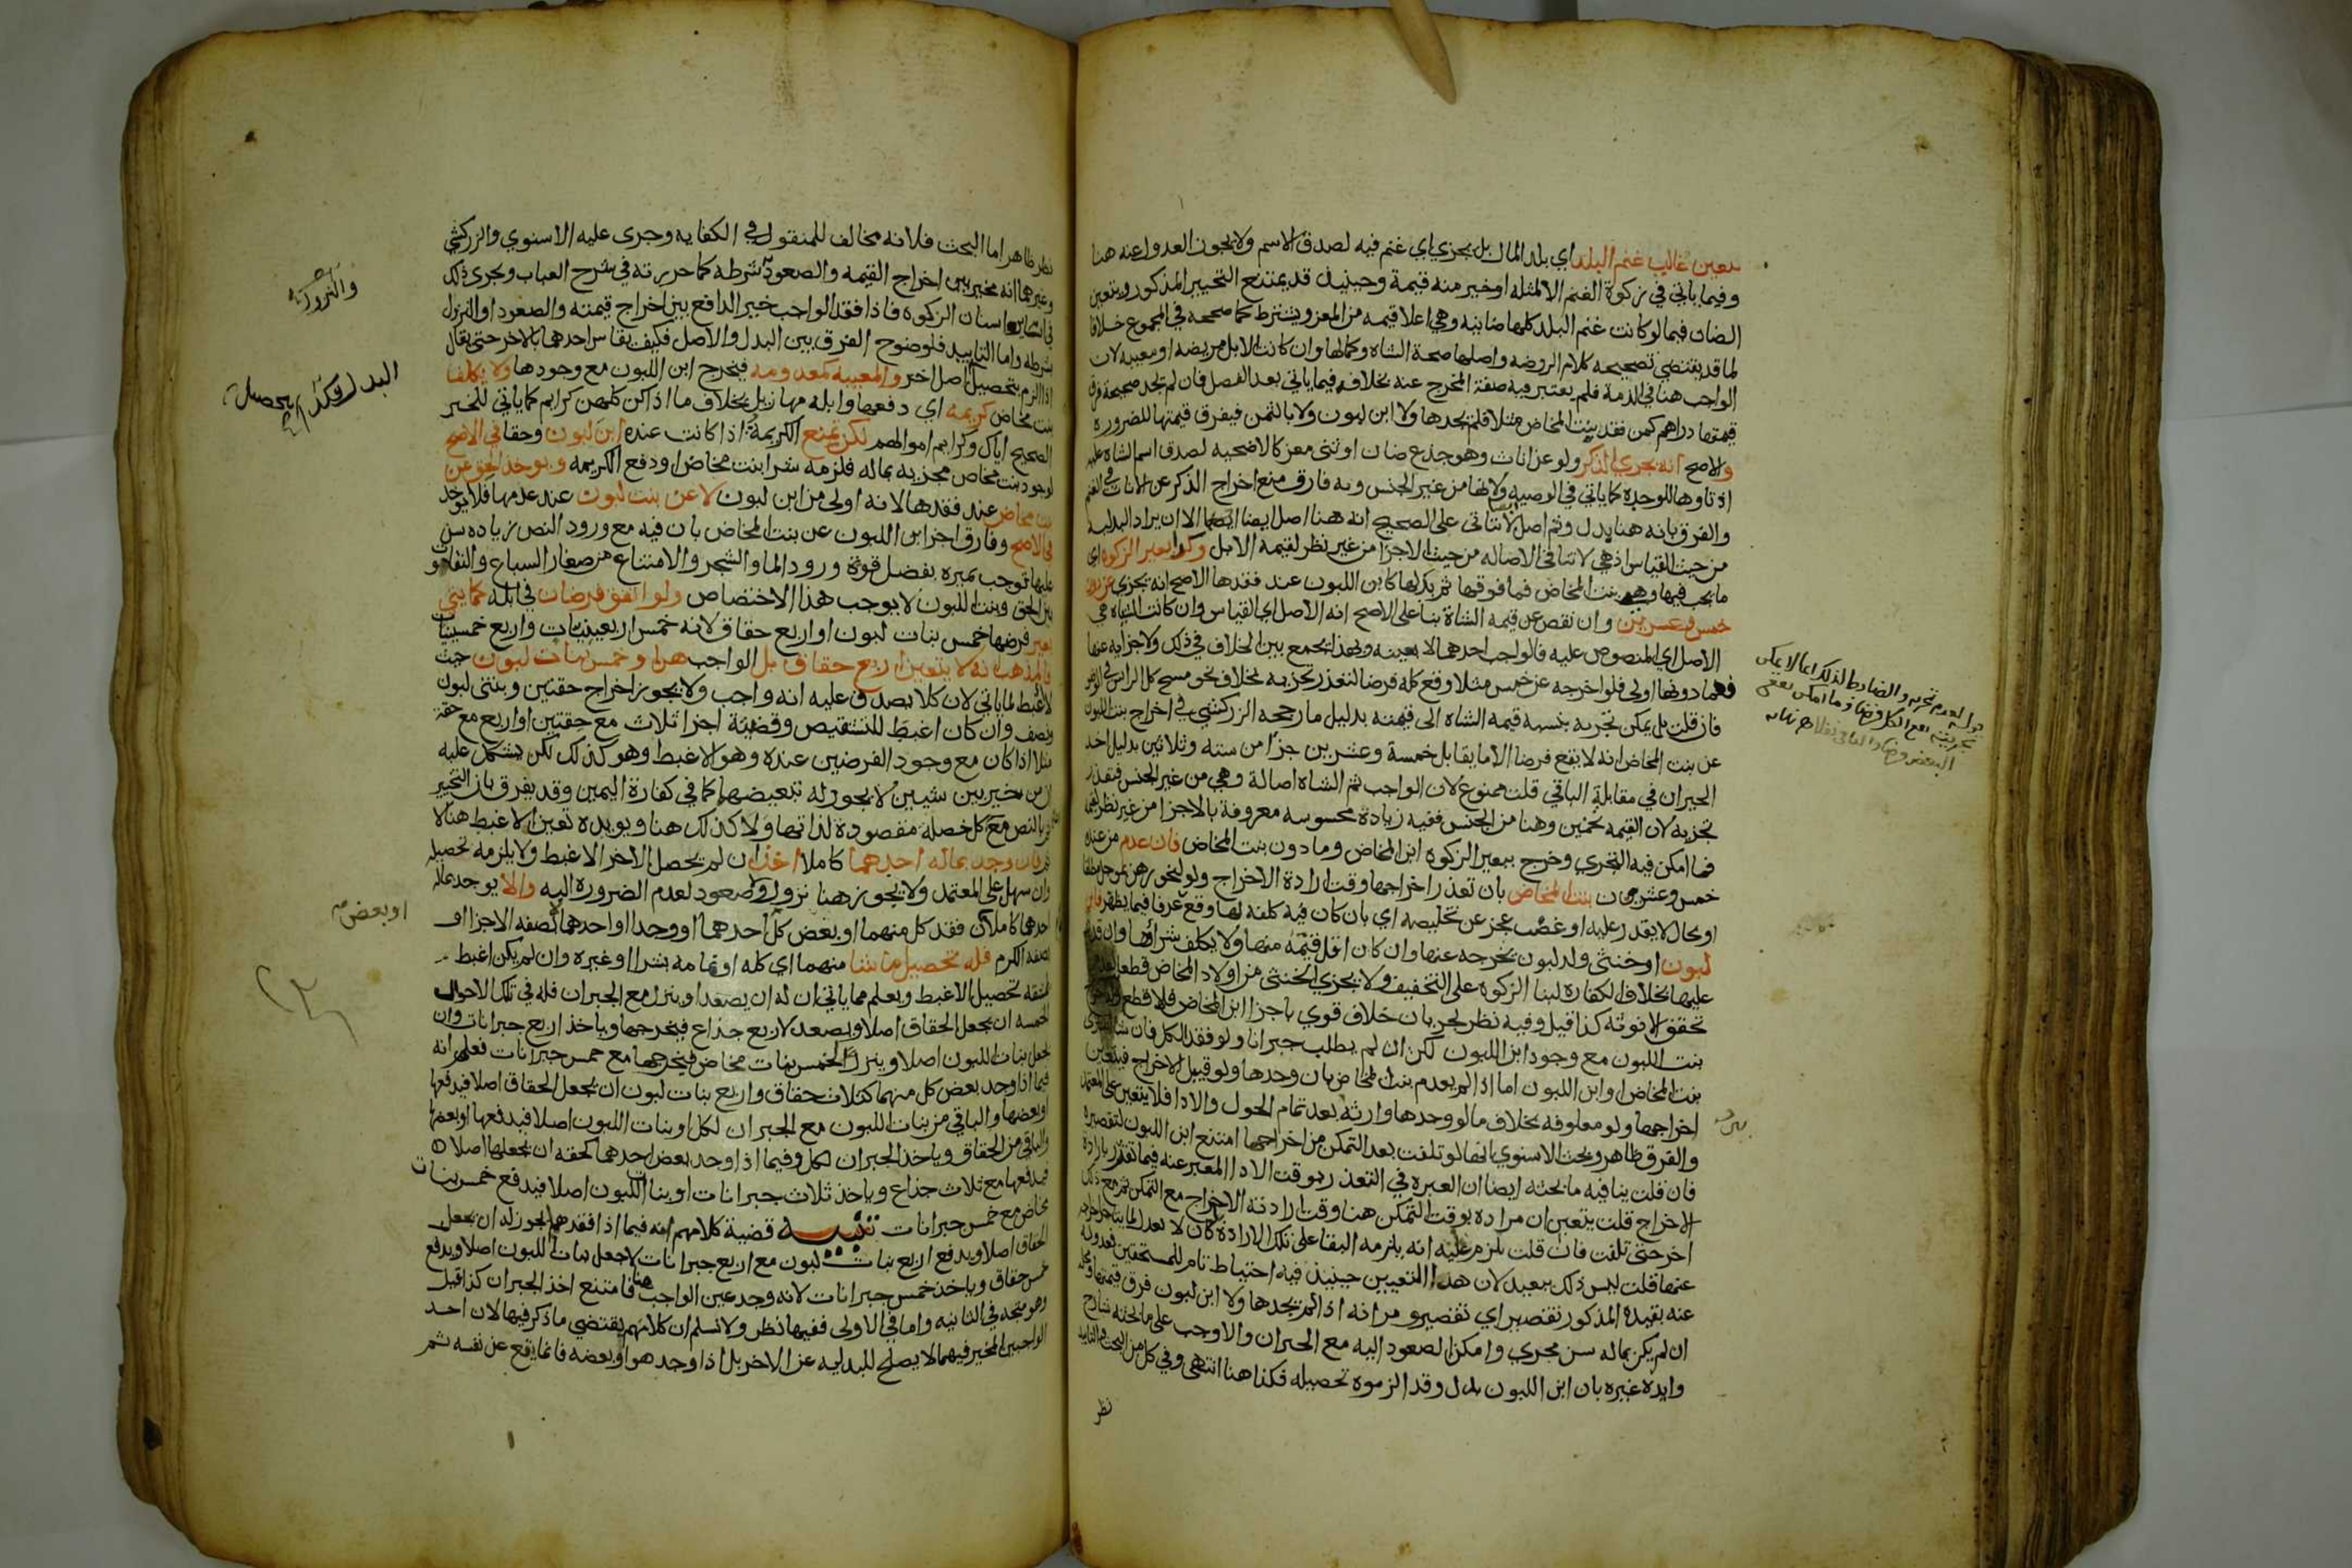 يتعين غالب غنم البلد اي بلد المال بل يجزي اي غنم فيه لصدق الاسم ولا يجوز العدول عنه هنا
وفيما ياتي في زكوة الغنم الا لمثله او خير منه قيمة وحينيذ قد يمتنع التخيير المذكور ويتعين
الضان فيما لو كانت غنم البلد كلها ضانيه وهي اعلا قيمه من المعز ويشترط كما صححه في المجموع خلافا
لما قد يقتضي تصحيحه كلام الروضه واصلها صحة الشاه وكمالها وان كانت الابل مريضه او معيبه لان
الواجب هنا في الذمة فلم يعتبر فيه صفة المخرج عنه بخلافه فيما ياتي بعد الفصل فان لم يجد صحيحة فرق
قيمتها دراهم كمن فقد بنت المخاض مثلا فلم يجدها ولا ابن لبون ولا بالثمن فيفرق قيمتها للضروره
والاصح انه يجزي الذكر ولو عن اناث وهو جذع ضان او ثني معز كالاضحيه لصدق اسم الشاه عليه
اذ تاوها للوحدة كما ياتي في الوصيه ولانها من غير الجنس وبه فارق منع اخراج الذكر عن الاناث في الغنم
والفرق بانه هنا بدل وثم اصل لا يتاتى على الصحيح انه هنا اصل ايضا الا ان يراد البدليه
من حيث القياس اذ هي لا تنافي الاصاله من حيث الاجزا من غير نظر لقيمة الابل وكذا بعير الزكوة اي
ما يجب فيها وهو بنت المخاض فما فوقها ثم بدلها كابن اللبون عند فقدها الاصح انه يجزي عن دون
خمس وعشرين وان نقص عن قيمة الشاة بنا على الاصح انه الاصل اي القياس وان كانت الشياه هي
الاصل اي المنصوص عليه فالواجب احدهما لا بعينه وبهذا يجمع بين الخلاف في ذلك ولاجزايه عنها
فعما دونها اولى فلو اخرجه عن خمس مثلا وقع كله فرضا لتعذر تجزيه بخلاف نحو مسح كل الراس في الوضو
فان قلت بل يمكن تجزيه بنسبة قيمة الشاه الى قيمته بدليل ما رجحه الزركشي في اخراج بنت اللبون
عن بنت المخاض انه لا يقع فرضا الا ما يقابل خمسة وعشرين جزا من سته وثلاثين بدليل اخذ
الجبران في مقابلة الباقي قلت ممنوع لان الواجب ثم الشاه اصالة وهي من غير الجنس فتعذر
تجزيه لان القيمه تخمين وهنا من الجنس ففيه زيادة محسوسه معروفة بالاجزا من غير نظر لقيمة
فما امكن فيه التجزي وخرج ببعير الزكوه ابن المخاض وما دون بنت المخاض فان عدم من عنده
خمس وعشرون بنت المخاض بان تعذر اخراجها وقت ارادة الاخراج ولو لنحو رهن بموجل مطلقا
او بحال لا يقدر عليه او غصب عجز عن تخليصه اي بان كان فيه كلفه لها وقع عرفا فيما يظهر فابن
لبون او خنثى ولد لبون يخرجه عنها وان كان اقل قيمة منها ولا يكلف شراوها وان قدر
عليها بخلاف الكفاره لبنا الزكوه على التخفيف ولا يجزي الخنثى من اولاد المخاض قطعا لعدم
تحقق الانوثه كذا قيل وفيه نظر لجريان خلاف قوي باجزا ابن المخاض فلا قطع
بنت اللبون مع وجود ابن اللبون لكن ان لم يطلب جبرانا ولو فقد الكل فان شا اشترى
بنت المخاض او ابن اللبون اما اذا لم يعدم بنت المخاض بان وجدها ولو قبيل الاخراج فيتعين
اخراجها ولو معلوفه بخلاف ما لو وجدها وارثه بعد تمام الحول والادا فلا يتعين على المعتمد
والفرق ظاهر وبحث الاسنوي انها لو تلفت بعد التمكن من اخراجها امتنع ابن اللبون لتقصيره
فان قلت ينافيه ما بحثه ايضا ان العبره في التعذر بوقت الادا المعبر عنه فيما تقرر بارادة
الاخراج قلت يتعين ان مراده بوقت التمكن هنا وقت ارادته الاخراج مع التمكن ثم مع ذلك
اخر حتى تلفت فان قلت يلزم عليه انه يلزمه البقا على تلك الارادة كان لا يعدل
عنها قلت ليس ذلك ببعيد لان هذا التعيين حينيذ فيه احتياط تام للمستحقين
عنه بقيده المذكور تقصير اي تقصير ومر انه اذا لم يجدها ولا ابن لبون فرق قيمتها
ان لم يكن بماله سن مجزي وامكن الصعود اليه مع الجبران والاوجب على ما بحثه شارح
وايده غيره بان ابن اللبون بدل وقد الزموه تحصيله فكذا هنا انتهى وفي كل من البحث والتاييد
نظر
البعض وضا
بين
نظر ظاهر اما البحث فلانه مخالف للمنقول في الكفايه وجرى عليه الاسنوي والزركشي
وغيرهما انه مخير بين اخراج القيمه والصعود بشرطه كما حررته في شرح العباب ويجري ذلك
في ساير اسنان الزكوه فاذا فقد الواجب خير الدافع بين اخراج قيمته والصعود او النزول
بشرطه واما التاييد فلوضوح الفرق بين البدل والاصل فكيف يقاس احدهما بالاخر حتى يقال
اذا الزم بتحصيل اصل اخر والمعيبه كمعدومه فيخرج ابن اللبون مع وجودها ولا يكلف
بنت مخاض كريمه اي دفعها وابله مهازيل بخلاف ما اذا كن كلهن كرايم كما ياتي للخبر
الصحيح اياك وكرايم اموالهم لكن تمنع الكريمة اذا كانت عنده ابن لبون وحقا في الاصح
لوجود بنت مخاض مجزيه بماله فلزمه شرا بنت مخاض او دفع الكريمه ويوخذ الحق عن
بنت مخاض عند فقدها لانه اولى من ابن لبون لا عن بنت لبون عند عدمها فلا يوخذ
في الاصح وفارق اجزا ابن اللبون عن بنت المخاض بان فيه مع ورود النص زياده سن
عليها توجب تميزه بفضل قوة ورود الما والشجر والامتناع من صغار السباع والتفاوت
بين الحق وبنت اللبون لا يوجب هذا الاختصاص ولو اتفق فرضان في ابله كمايتي
بعير فرضها خمس بنات لبون او اربع حقاق لانه خمس اربعينيات واربع خمسينيات
فالمذهب انه لا يتعين اربع حقاق بل الواجب هن او خمس بنات لبون حيث
لا اغبط لما ياتي لان كلا يصدق عليه انه واجب ولا يجوز اخراج حقتين وبنتي لبون
ونصف وان كان اغبط للتشقيص وقضية اجزا ثلاث مع حقتين او اربع مع حقة
مثلا اذا كان مع وجود الفرضين عنده وهو الاغبط وهو كذلك لكن يشكل عليه
ان من خير بين شيين لا يجوز له تبعيضهما كما في كفارة اليمين وقد يفرق بان التخيير
ثم بالنص مع كل خصلة مقصودة لذاتها ولا كذلك هنا ويويده تعين الاغبط هنا لا
ثم فان وجد بماله احدهما كاملا اخذ ان لم يحصل الاخر الاغبط ولا يلزمه تحصيله
وان سهل على المعتمد ولا يجوز هنا نزول ولا صعود لعدم الضروره اليه والا يوجد بماله
احدهما كاملا كان فقد كل منهما او بعض كل احدهما او وجدا او احدهما لا بصفة الاجزا او
بصفة الكرم فله تحصيل ما شا منهما اي كله او تمامه بشرا او غيره وان لم يكن اغبط
لمشقة تحصيل الاغبط ويعلم مما ياتي ان له ان يصعد او ينزل مع الجبران فله في تلك الاحوال
الخمسه ان يجعل الحقاق اصلا ويصعد لاربع جذاع فيخرجها وياخذ اربع جبرانات وان
يجعل بنات اللبون اصلا وينزل لخمس بنات مخاض فيخرجها مع خمس جبرانات فعلم انه
فيما اذا وجد بعض كل منهما كثلاث حقاق واربع بنات لبون ان يجعل الحقاق اصلا فيدفعها
او بعضها والباقي من بنات اللبون مع الجبران لكل او بنات اللبون اصلا فيدفعها او بعضها
والباقي من الحقاق وياخذ الجبران لكل وفيما اذا وجد بعض احدهما كحقه ان يجعلها اصلا
فيدفعها مع ثلاث جذاع وياخذ ثلاث جبرانات او بنات اللبون اصلا فيدفع خمس بنات
مخاض مع خمس جبرانات تنبيه قضية كلامهم انه فيما اذا فقدهما يجوز له ان يجعل
الحقاق اصلا ويدفع اربع بنات لبون مع اربع جبرانات لا جعل بنات اللبون اصلا ويدفع
خمس حقاق وياخذ خمس جبرانات لانه وجد عين الواجب هنا فامتنع اخذ الجبران كذا قيل
وهو متجه في الثانيه واما في الاولى ففيها نظر ولا نسلم ان كلامهم يقتضي ما ذكر فيها لان احد
الواجبين المخير فيهما لا يصلح للبدليه عن الاخر بل اذا وجد هو او بعضه فانما يقع عن نفسه ثم
والنزول
البدل وكذا تحصيل
او بعض